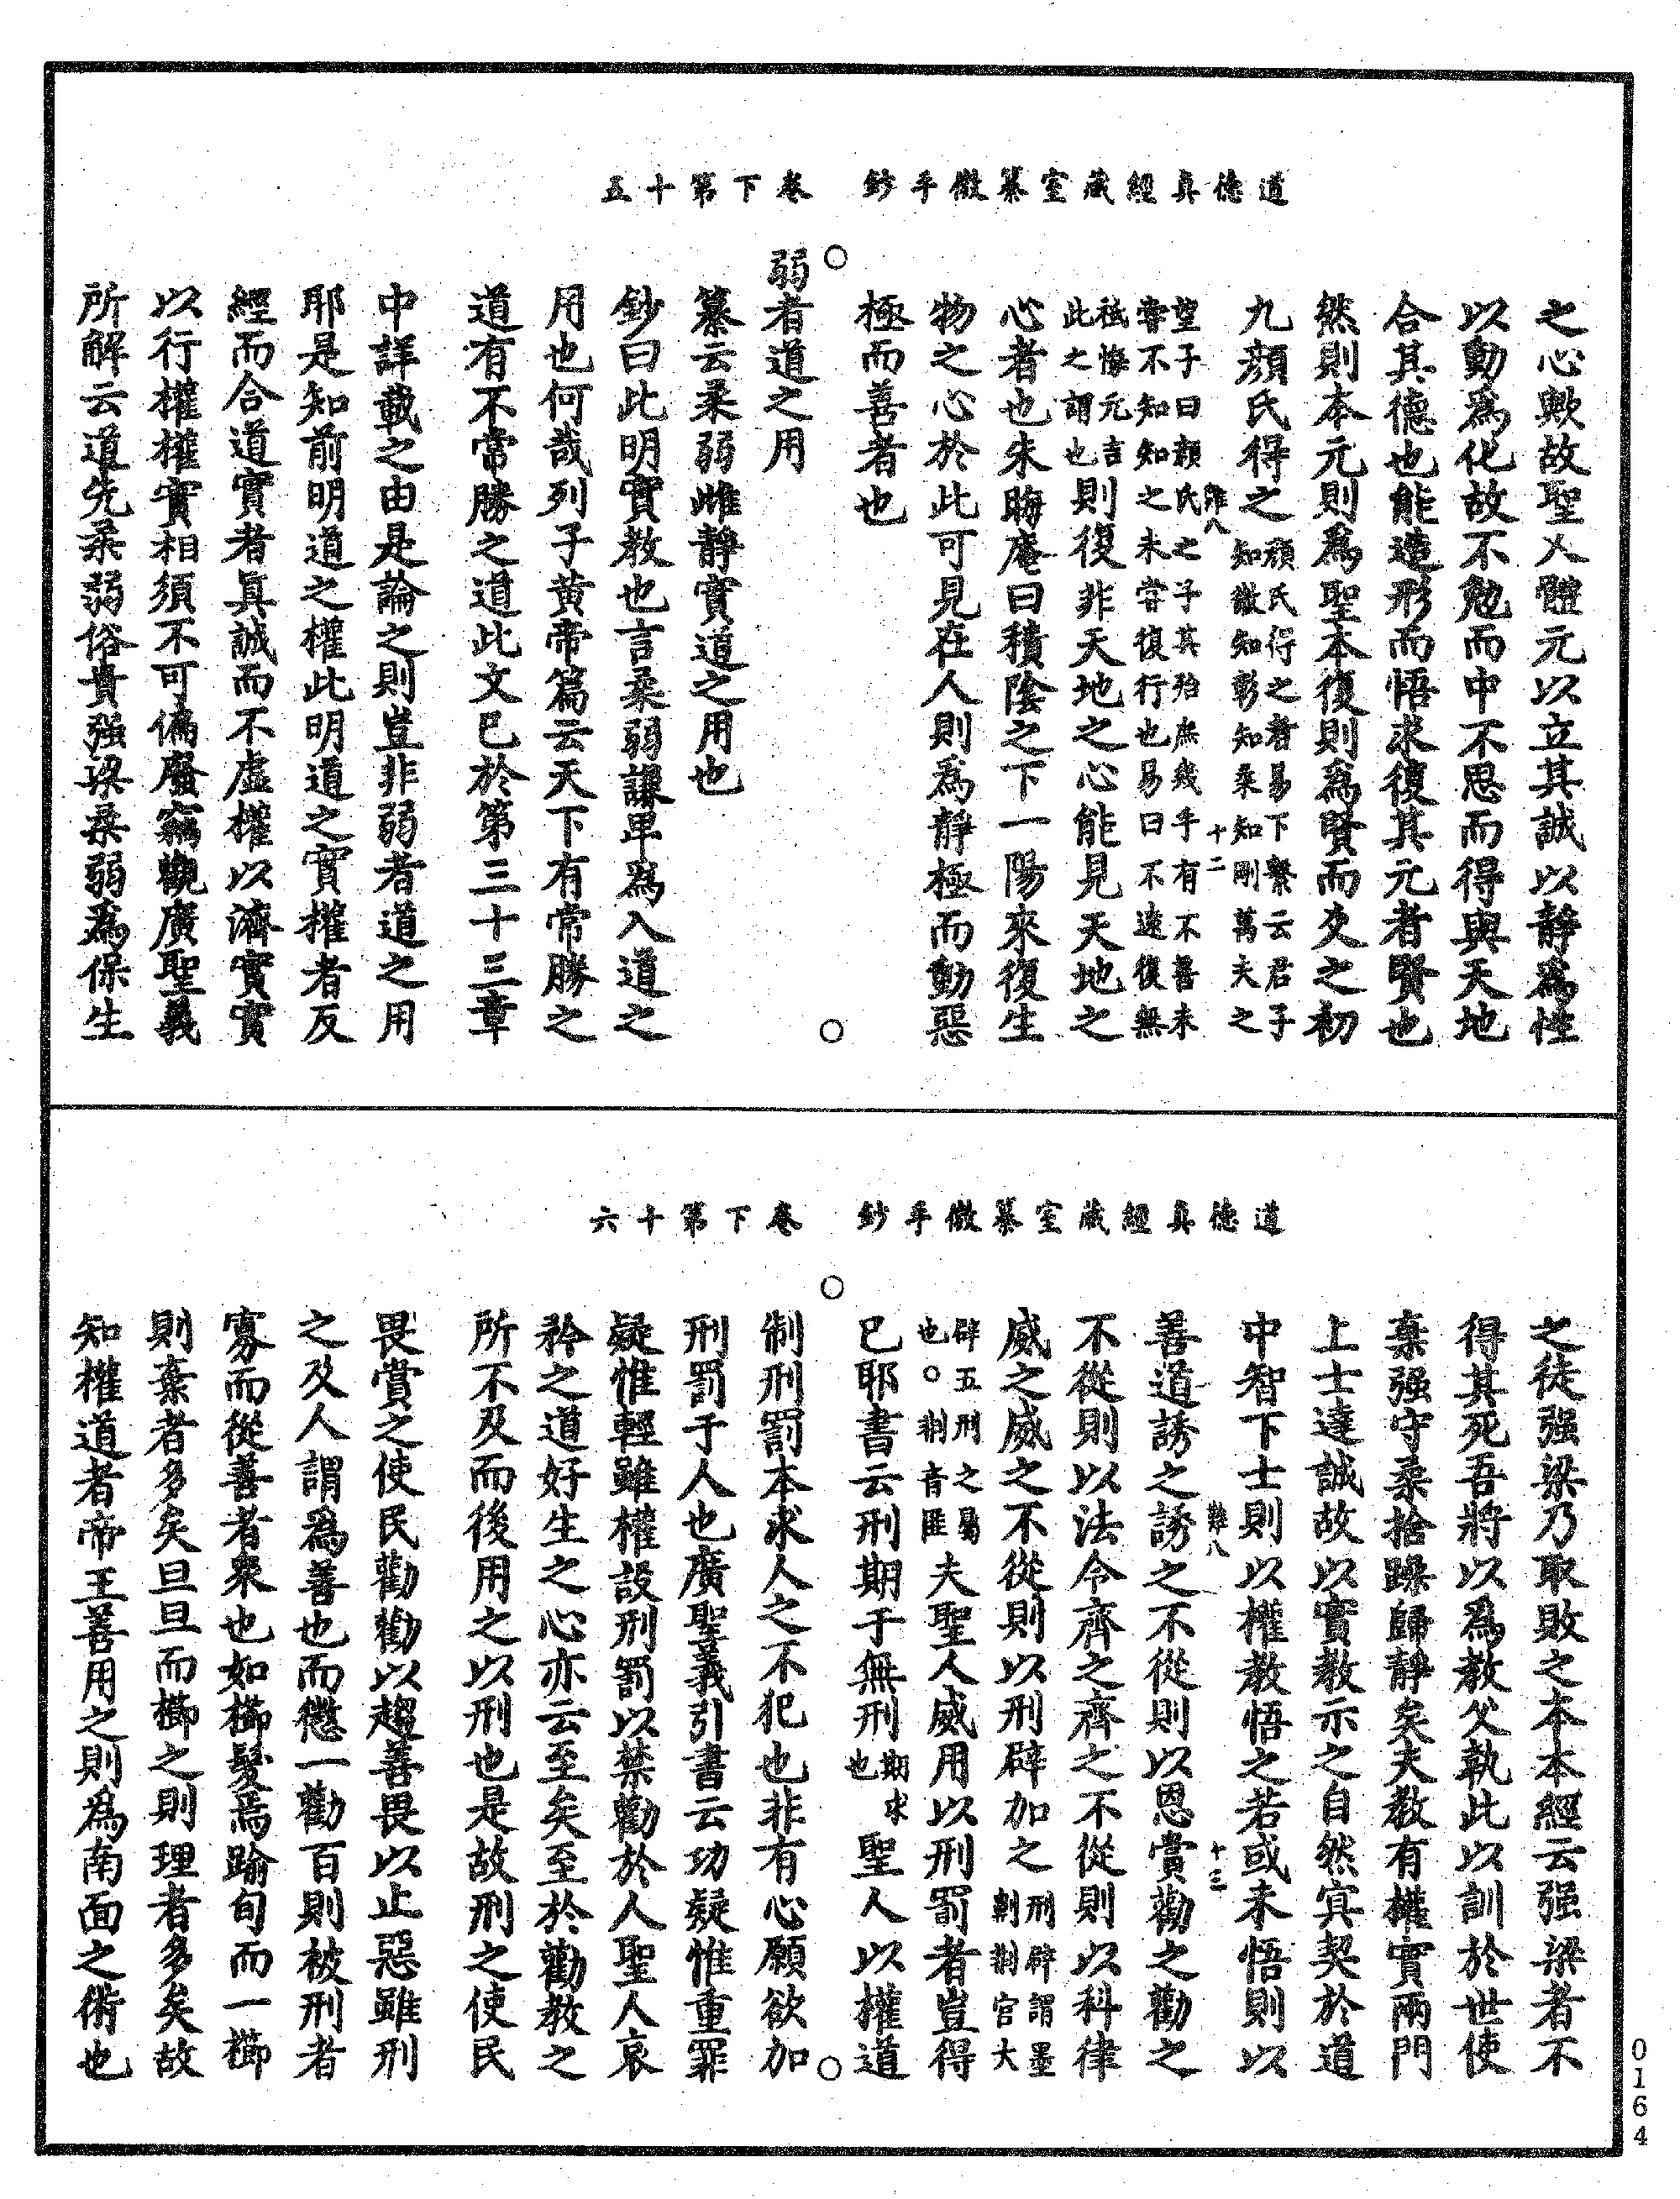 道德真經藏室纂微手鈔　卷下第十五
之心歟故聖人體元以立其誠以靜爲性
以動爲化故不勉而中不思而得與天地
合其德也能造形而悟求復其元者賢也
然則本元則爲聖本復則爲賢而反之初
九顏氏得之顏氏得之者易下繫云君子
知微知彰知柔知剛萬夫之
難八
十二
望子曰顏氏之子其殆庶幾乎有不善未
嘗不知知之未嘗復行也易曰不遠復無
祗悔元吉
此之謂也則復非天地之心能見天地之
心者也朱晦庵曰積陰之下一陽來復生
物之心於此可見在人則爲靜極而動惡
極而善者也
弱者道之用
纂云柔弱雌靜實道之用也
鈔曰此明實教也言柔弱謙卑爲入道之
用也何哉列子黃帝篇云天下有常勝之
道有不常勝之道此文已於第三十三章
中詳載之由是論之則豈非弱者道之用
耶是知前明道之權此明道之實權者反
經而合道實者真誠而不虛權以濟實實
以行權權實相須不可偏廢竊觀廣聖義
所解云道先柔弱俗貴强梁柔弱爲保生
道德真經藏室纂微手鈔　卷下第十六
之徒强梁乃取敗之本本經云强梁者不
得其死吾將以爲教父執此以訓於世使
棄强守柔捨躁歸靜矣夫教有權實兩門
上士達誠故以實教示之自然冥契於道
中智下士則以權教悟之若或未悟則以
難八
十三
善道誘之誘之不從則以恩賞勸之勸之
不從則以法令齊之齊之不從則以科律
威之威之不從則以刑辟加之刑辟謂墨
劓剕宮大
辟五刑之屬
也○剕音匪夫聖人威用以刑罰者豈得
已耶書云刑期于無刑期求
也聖人以權道
制刑罰本求人之不犯也非有心願欲加
刑罰于人也廣聖義引書云功疑惟重罪
疑惟輕雖權設刑罰以禁勸於人聖人哀
矜之道好生之心亦云至矣至於勸教之
所不及而後用之以刑也是故刑之使民
畏賞之使民勸勸以趨善畏以止惡雖刑
之及人謂爲善也而懲一勸百則被刑者
寡而從善者衆也如櫛髮焉踰旬而一櫛
則棄者多矣旦旦而櫛之則理者多矣故
知權道者帝王善用之則爲南面之術也
0164